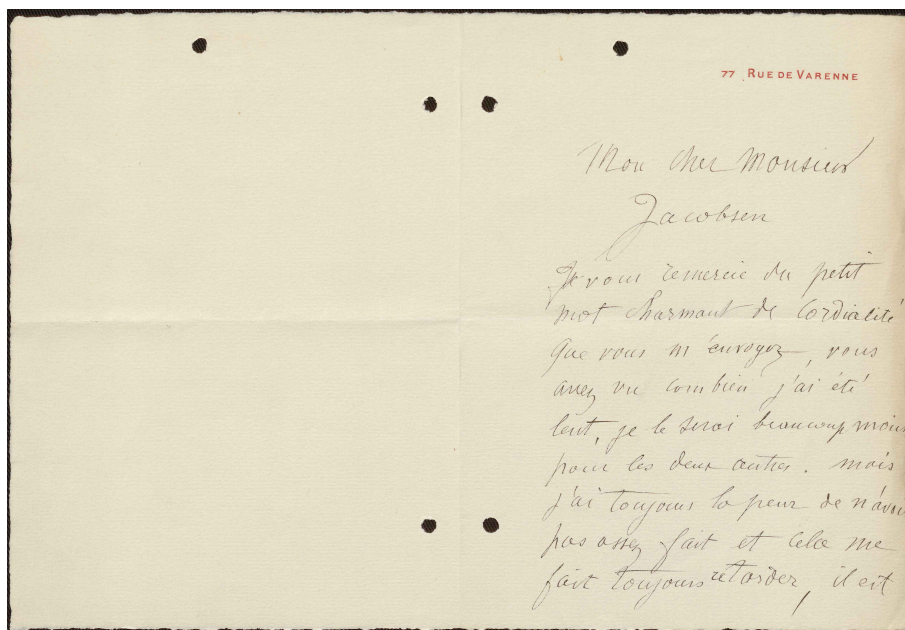 77 RUE DE VARENNE
Mon cher Monsieur
Jacobsen
Je vous remercie du petit
mot charmant de cordialité
que vous m'envoyez, vous
avez vu combien j'ai été
lent, je le serai beaucoup moins
pour les deux autres. mais
j'ai toujours la peur de n'avoir
pas assez fait et cela me
fait toujours retarder, il est